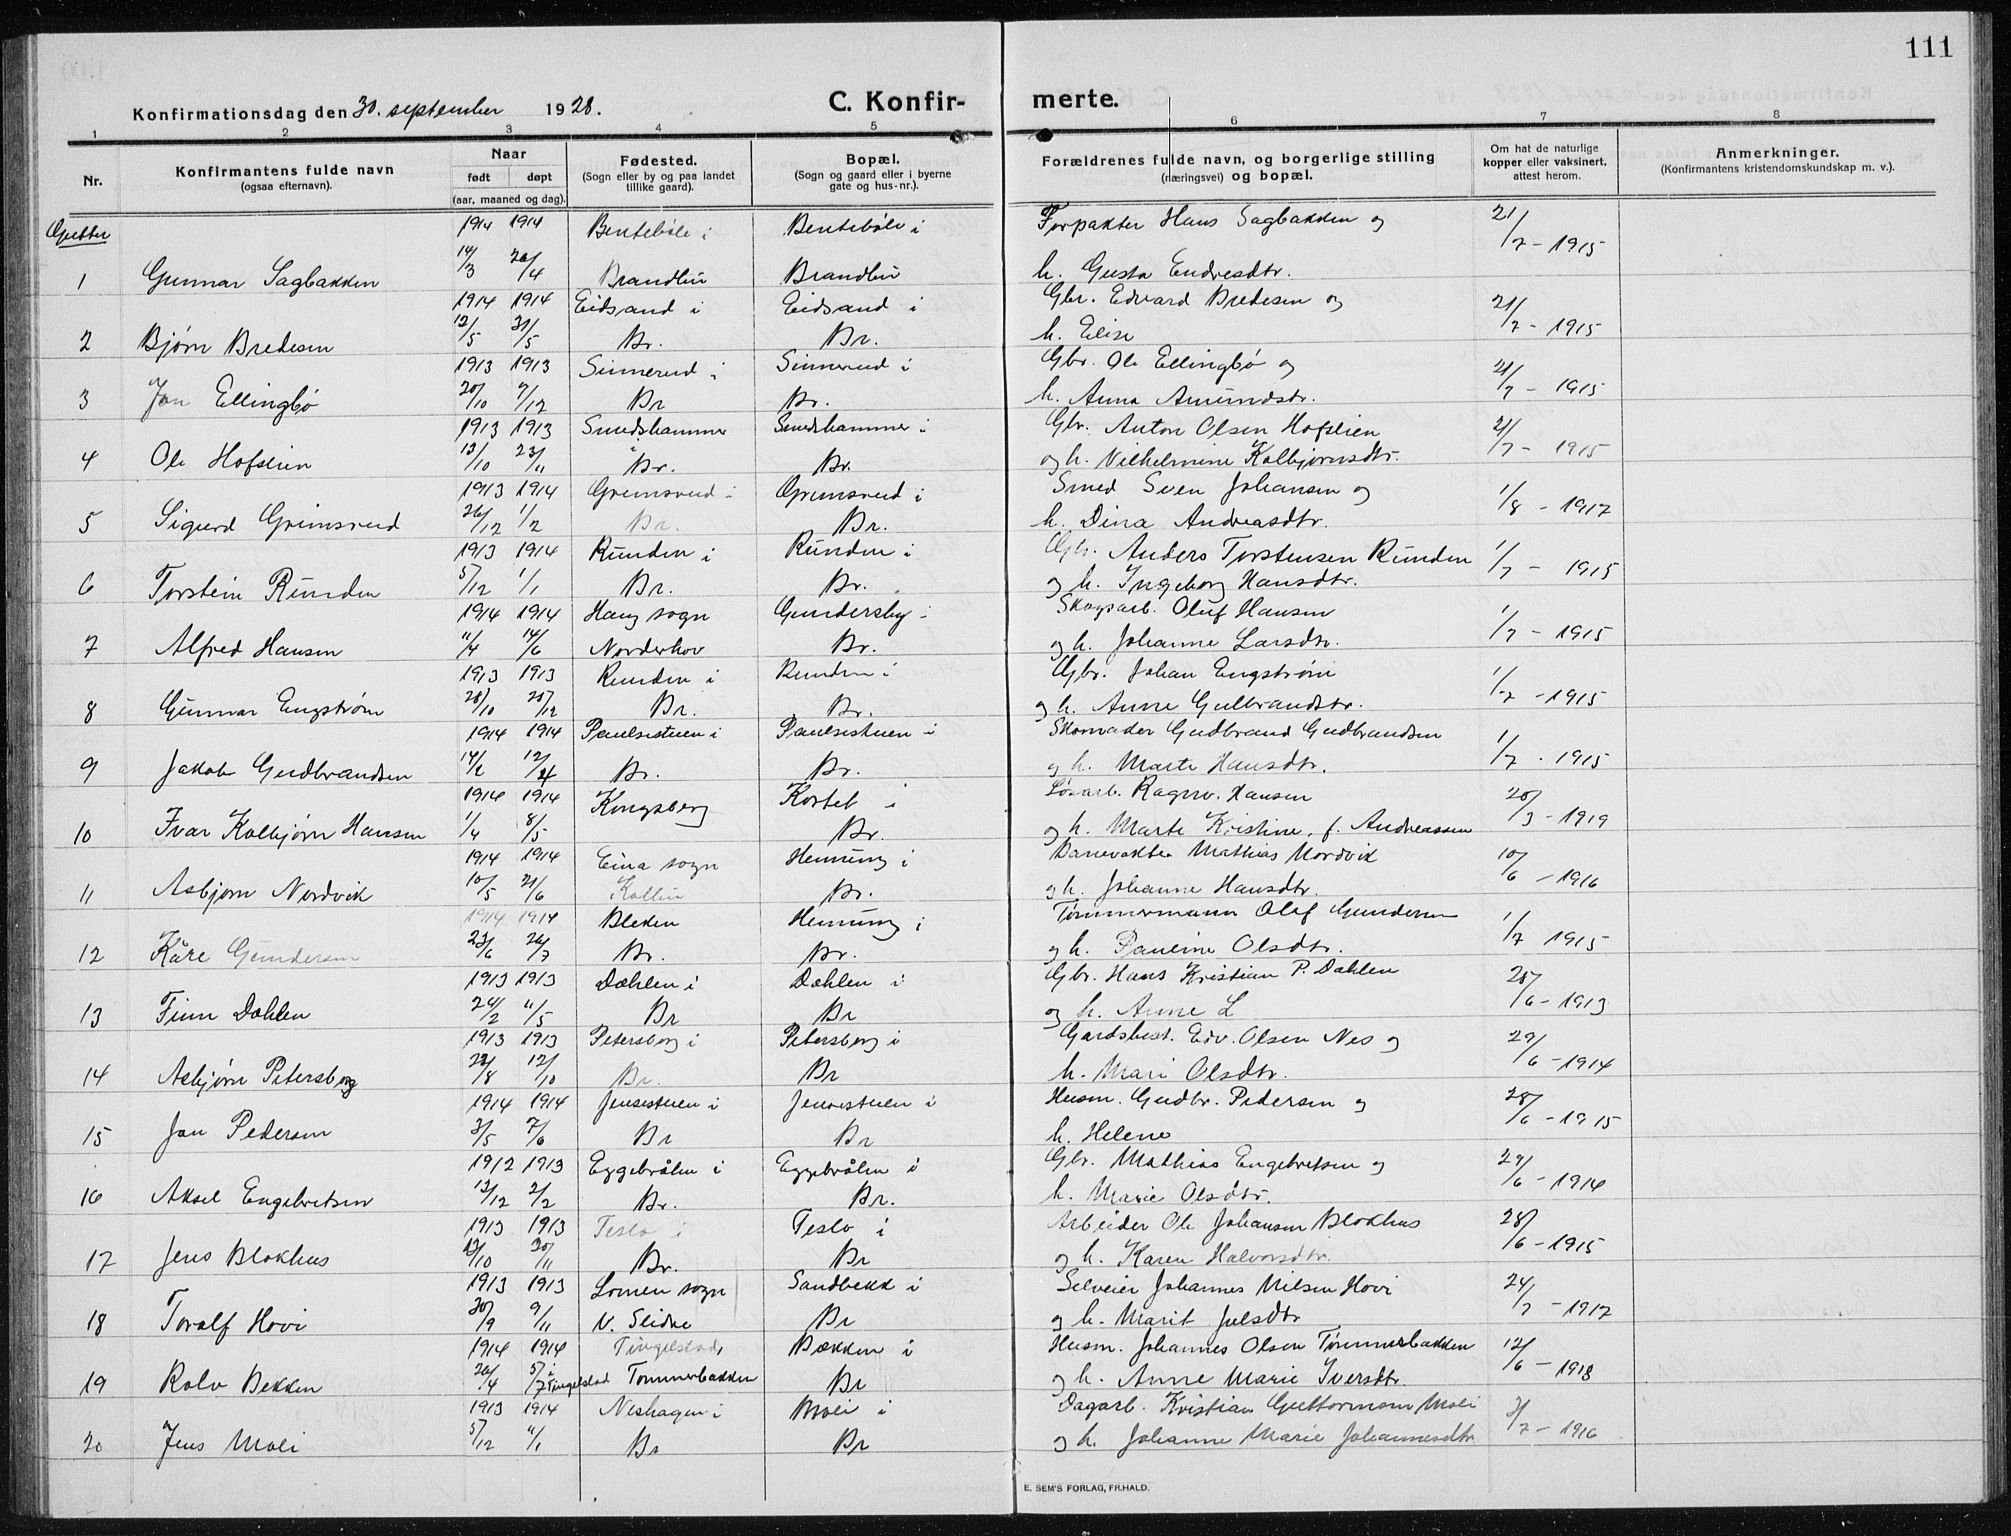 111
Konfirmationsdag den 30. september 1928.
C. Konfir- merte.
1 2 3 4 5 6 7 8
Nr.
Konfirmantens fulde navn
(ogsaa efternavn).
Naar
født døpt
(aar, maaned og dag).
Fødested.
(Sogn eller by og paa landet
tillike gaard).
Bopæl.
(Sogn og gaard eller i byerne
gate og hus-nr.).
Forældrenes fulde navn, og borgerlige stilling
(næringsvei) og bopæl.
Om hat de naturlige
kopper eller vaksinert,
attest herom.
Anmerkninger.
(Konfirmantens kristendomskundskap m. v.).
Gutter
1914 1914 Bentebøle i Bentebøle i Forpakter Hans Sagbakken og 21/7 - 1915
1 Gunnar Sagbakken 14/3 26/4 Brandbu Brandbu h. Gusta Endresdtr.
1914 1914 Eidsand i Eidsand i Gbr. Edvard Bredesen og 21/7 - 1915
2 Bjørn Bredesen 12/5 31/5 Br. Br. h. Elise
1913 1913 Sinnerud i Sinnerud i Gbr. Ole Ellingbø og 21/7 - 1915
3 Jon Ellingbø 20/10 7/12 Br Br. h. Anna Amundstr.
1913 1913 Smedshammer i Smedshammer i Gbr. Anton Olsen Hofslien 21/7 - 1915
4 Ole Hofslien 13/10 23/11 Br. Br. og h. Vilhelmine Kolbjørnsdtr.
1913 1914 Grimsrud i Grimsrud i Smed Sven Johansen og 1/8 - 1917
5 Sigurd Grimsrud 26/12 1/2 Br. Br. h. Dina Andreasdtr.
1913 1914 Runden i Runden i Gbr. Anders Torstensen Runden 1/7 - 1915
6 Torstein Runden 5/12 1/1 Br. Br. og h. Ingeborg Hansdtr.
1914 1914 Haug sogn Gundersby i Skogsarb. Oluf Hansen 1/7 - 1915
7 Alfred Hansen 11/4 14/6 Norderhov Br. og h. Johanne Larsdtr.
1913 1913 Runden i Runden i Gbr. Johan Engstrøm 1/7 - 1915
8 Gunnar Engstrøm 28/10 28/12 Br. Br. og h. Anne Gulbrandstr.
1914 1914 Paulsestuen i Paulsestuen i Skomaker Gudbrand Gudbrandsen 1/7 . 1915
9 Jakob Gudbrandsen 14/2 12/4 Br. Br. og h. Marte Hansdtr.
1914 1914 Kongsberg Kortel i Løsarb. Ragnv. Hansen 20/3 - 1919
10 Ivar Kolbjørn Hansen 1/4 8/5 Br. og h. Marte Kristine, f. Andreassen
1914 1914 Eina sogn Hennung i Banevokter Mathias Nordvik 10/6 - 1916
11 Asbjørn Nordvik 10/5 21/6 Kolbu Br. og h. Johanne Hansdtr.
1914 1914 Bleken Hennung i Tømmermann Olaf Gundersen 1/7 1915
12 Kåre Gundersen 23/6 26/7 Br. Br. og h. Pauline Olsdtr.
1913 1913 Dæhlen i Dæhlen i Gbr. Hans Kristian P. Dæhlen 28/6 - 1913
13 Finn Dæhlen 24/2 4/5 Br Br og h. Anne L
1913 1913 Petersborg i Petersborg i Gardsbest. Edv. Olsen Nes og 29/6 - 1914
14 Asbjørn Petersborg 22/8 12/10 Br. Br h. Mari Olsdtr.
1914 1914 Jensestuen i Jensestuen i Husm. Gudbr. Pedersen og 28/6 - 1915
15 Jan Pedersen 3/5 7/6 Br Br h. Helene
1912 1913 Eggebråten i Eggebråten i Gbr. Mathias Engebretsen og 29/6 - 1914
16 Aksel Engebretsen 12/12 2/2 Br. Br. h. Marie Olsdtr.
1913 1913 Teslo i Teslo i Arbeider Ole Johansen Blokhus 28/6 - 1915
17 Jens Blokhus 13/10 30/11 Br. Br og h. Karen Halvorsdtr.
1913 1913 Lomen sogn Sandbekk i Selveier Johannes Nilsen Hovi 24/7 - 1917
18 Toralf Hovi 30/9 9/11 V. Slidre Br og h. Marit Julsdtr
1914 1914 Tingelstad Bækken i Husm. Johannes Olsen Tømmerbakken 12/6 - 1918
19 Rolv Bekken 26/4 5/7 i Tingelstad Tømmerbakken Br og h. Anne Marie Iversdtr.
1913 1914 Neshagen i Moli i Dagarb. Kristian Guttormsen Moli 3/7 - 1916
20 Jens Moli 5/12 4/1 Br Br og h. Johanne Marie Johannesdtr
E. SEM'S FORLAG, FR.HALD.